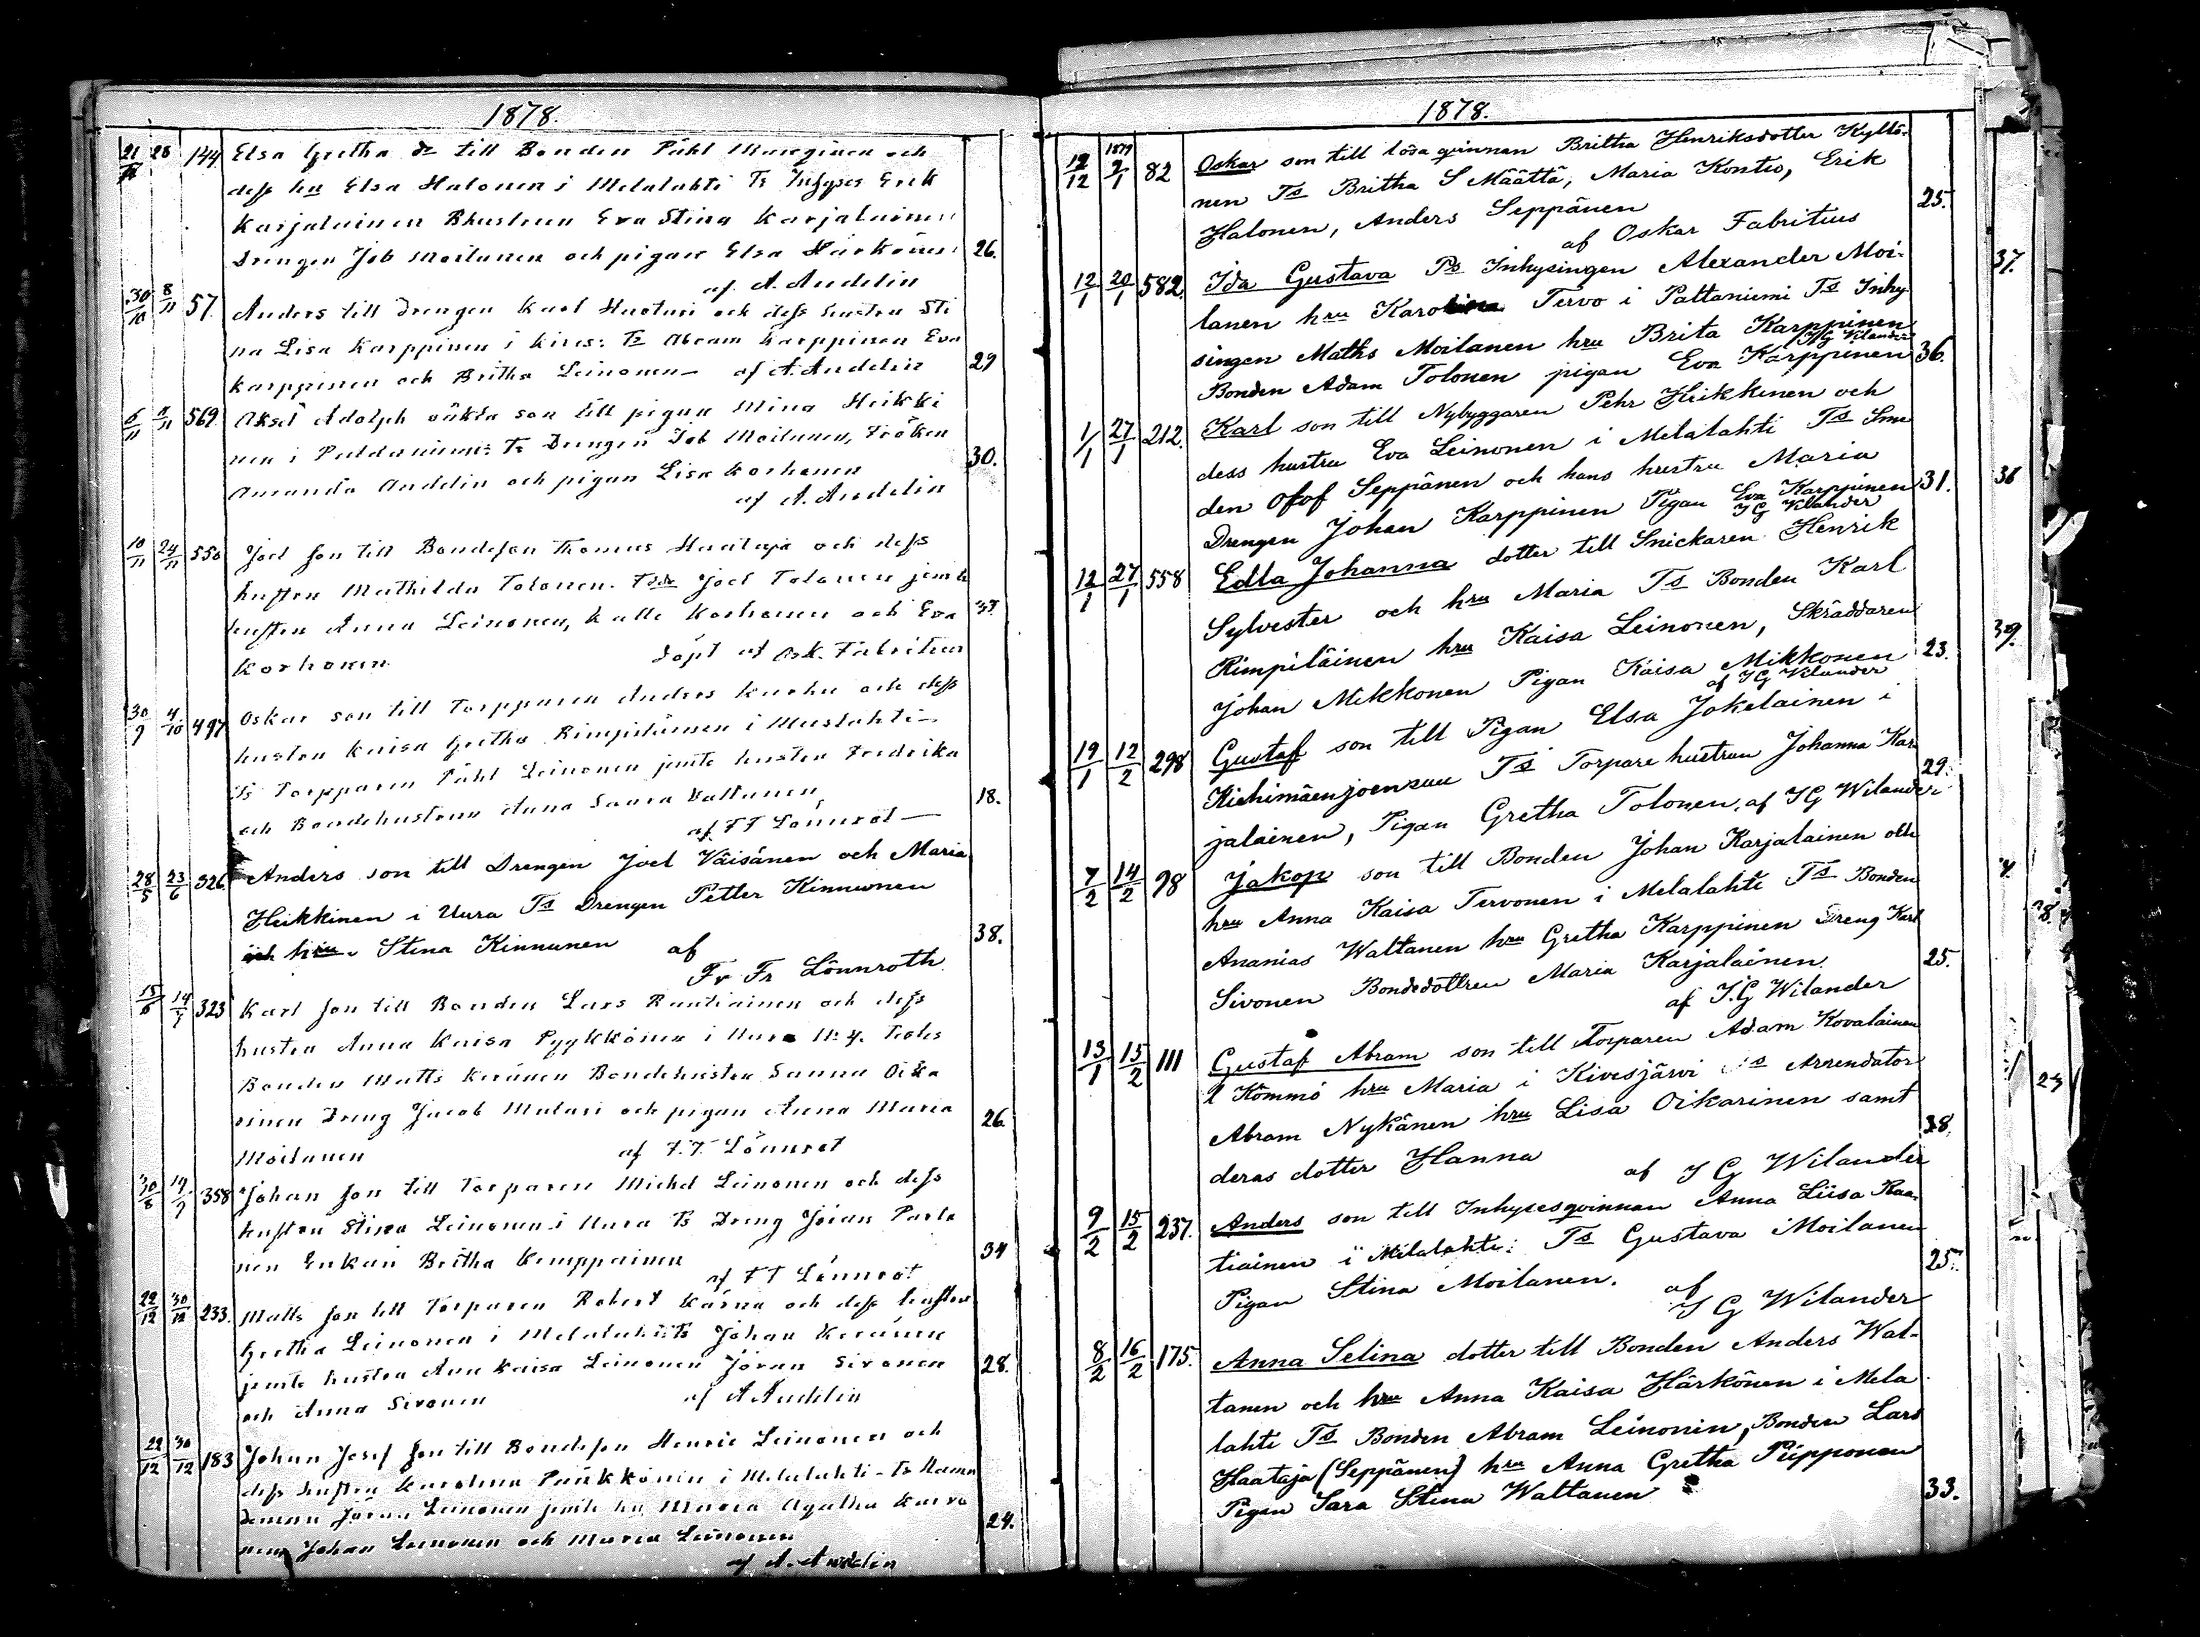 1878.
21/12 28 144 Elsa Gretha dr till Bonden Påhl Mureginen och
dess hu Elsa Halonen i Melalahti Ts Inhyses Erik
Karjalainen Bhustrun Eva Stina Karjalainen
Drengen Job Moilanen och pigan Elsa Härkönen 26.
af A. Andelin
30/10 8/11 57. Anders till Drengen Karl Huoturi och dess hustru Sti
na Lisa Karppinen i Kives: Ts Abram Karppinen Eva
Karppinen och Britha Leinonen — af A. Andelin 29
6/11 8/11 569. Aksel Adolph oäkta son till pigan Mina Heikki
nen i Paldaniemi: Ts Drengen Job Moilanen, Fröken
Amanda Andelin och pigan Lisa Korhonen 30.
af A. Andelin
10/11 24/11 550 Joel son till Bondeson Thomas Haataja och dess
hustru Mathilda Tolonen. Ts Joel Tolonen jemte
hustru Anna Leinonen, Kalle Korhonen och Eva
Korhonen döpt af Osk. Fabritius
30/9 4/10 497 Oskar son till Torpparen Anders Karhu och dess
hustru Kaisa Gretha Rimpiläinen i Mustahti
Ts Torpparen Påhl Leinonen jemte hustru Fredrika
och Bondehustrun Anna Saara Valtanen 18.
af F F Lönnrot —
28/5 23/6 326 Anders son till Drengen Joel Väisänen och Maria
Heikkinen i Uura Ts Drengen Petter Kinnunen
och hru Stina Kinnunen af 38.
Fr Fr Lönnroth
15/6 14/7 323 Karl son till Bonden Lars Rautiainen och dess
hustru Anna Kaisa Pyykkönen i Uura N: 4. Testes
Bonden Matts Keränen Bondehustru Sanna Oika
rinen Dreng Jacob Mulari och pigan Anna Maria 26
Moilanen af F. F. Lönnrot
30/6 14/7 358 Johan son till Torparen Michel Leinonen och dess
hustru Stina Leinonen i Uura Ts Dreng Johan Parta
nen Enkan Britha Kemppainen 34
af F F Lönnrot
22/12 30/12 233. Matts son till Torparen Robert Kärnä och dess hustru
Gretha Leinonen i Melalahti Ts Johan Keränen
jemte hustru Ann Kaisa Leinonen Jöran Sivonen 28.
och Anna Sivonen af A Andelin
22/12 30/12 183 Johan Josef son till Bondeson Henric Leinonen och
dess hustru Karolina Pääkkönen i Melalahti - Ts Nämn
demann Jöran Leinonen jemte hu Maria Agatha Karvo
nen, Johan Leinonen och Maria Leinonen 24.
af A. Andelin
1878.
12/12 1879 9/1 82 Oskar son till lösa qvinnan Britha Henriksdotter Kyllö-
nen Ts Britha S Määttä, Maria Kontio, Erik
Halonen, Anders Seppänen 25.
af Oskar Fabritius
12/1 20/1 582. Ida Gustava Ps Inhysingen Alexander Moi-
lanen hru Karolina Tervo i Paltaniemi Ts Inhy
singen Maths Moilanen hru Brita Karppinen
Bonden Adam Tolonen pigan Eva Karppinen 36.
IG Vilander
1/1 27/1 212. Karl son till Nybyggaren Pehr Heikkinen och
dess hustru Eva Leinonen i Melalahti Ts Sme
den Olof Seppänen och hans hustru Maria
Drengen Johan Karppinen Pigan Eva Karppinen 31.
IG Vilander
12/1 27/1 558 Edla Johanna dotter till Snickaren Henrik
Sylvester och hru Maria Ts Bonden Karl
Rimpiläinen hru Kaisa Leinonen, Skräddaren
Johan Mikkonen Pigan Kaisa Mikkonen 23.
af IG Vilander
19/1 12/2 298 Gustaf son till Pigan Elsa Jokelainen i
Kiehimäenjoensuu Ts Torpare hustrun Johanna Kar
jalainen, Pigan Gretha Tolonen, af I G Wilander 29.
7/2 14/2 98 Jakop son till Bonden Johan Karjalainen och
hru Anna Kaisa Tervonen i Melalahti Ts Bonden
Ananias Waltanen hru Gretha Karppinen Dreng Karl
Sivonen Bondedottren Maria Karjalainen. 25.
af I.G Wilander
13/1 15/2 111 Gustaf Abram son till Torparen Adam Kovalainen
l Kömmö hru Maria i Kivesjärvi Ts Arrendator
Abram Nykänen hru Lisa Oikarinen samt
deras dotter Hanna 28.
af I G Wilander
9/2 15/2 237. Anders son till Inhysesqvinnan Anna Liisa Rau
tiainen i Melalahti: Ts Gustava Moilanen
Pigan Stina Moilanen. 25.
af
I G Wilander
8/2 16/2 175. Anna Selina dotter till Bonden Anders Wal-
tanen och hru Anna Kaisa Härkönen i Mela
lahti Ts Bonden Abram Leinonin, Bonden Lars
Haataja (Seppänen) hru Anna Gretha Piipponen
Pigan Sara Stina Waltanen 33.
37.